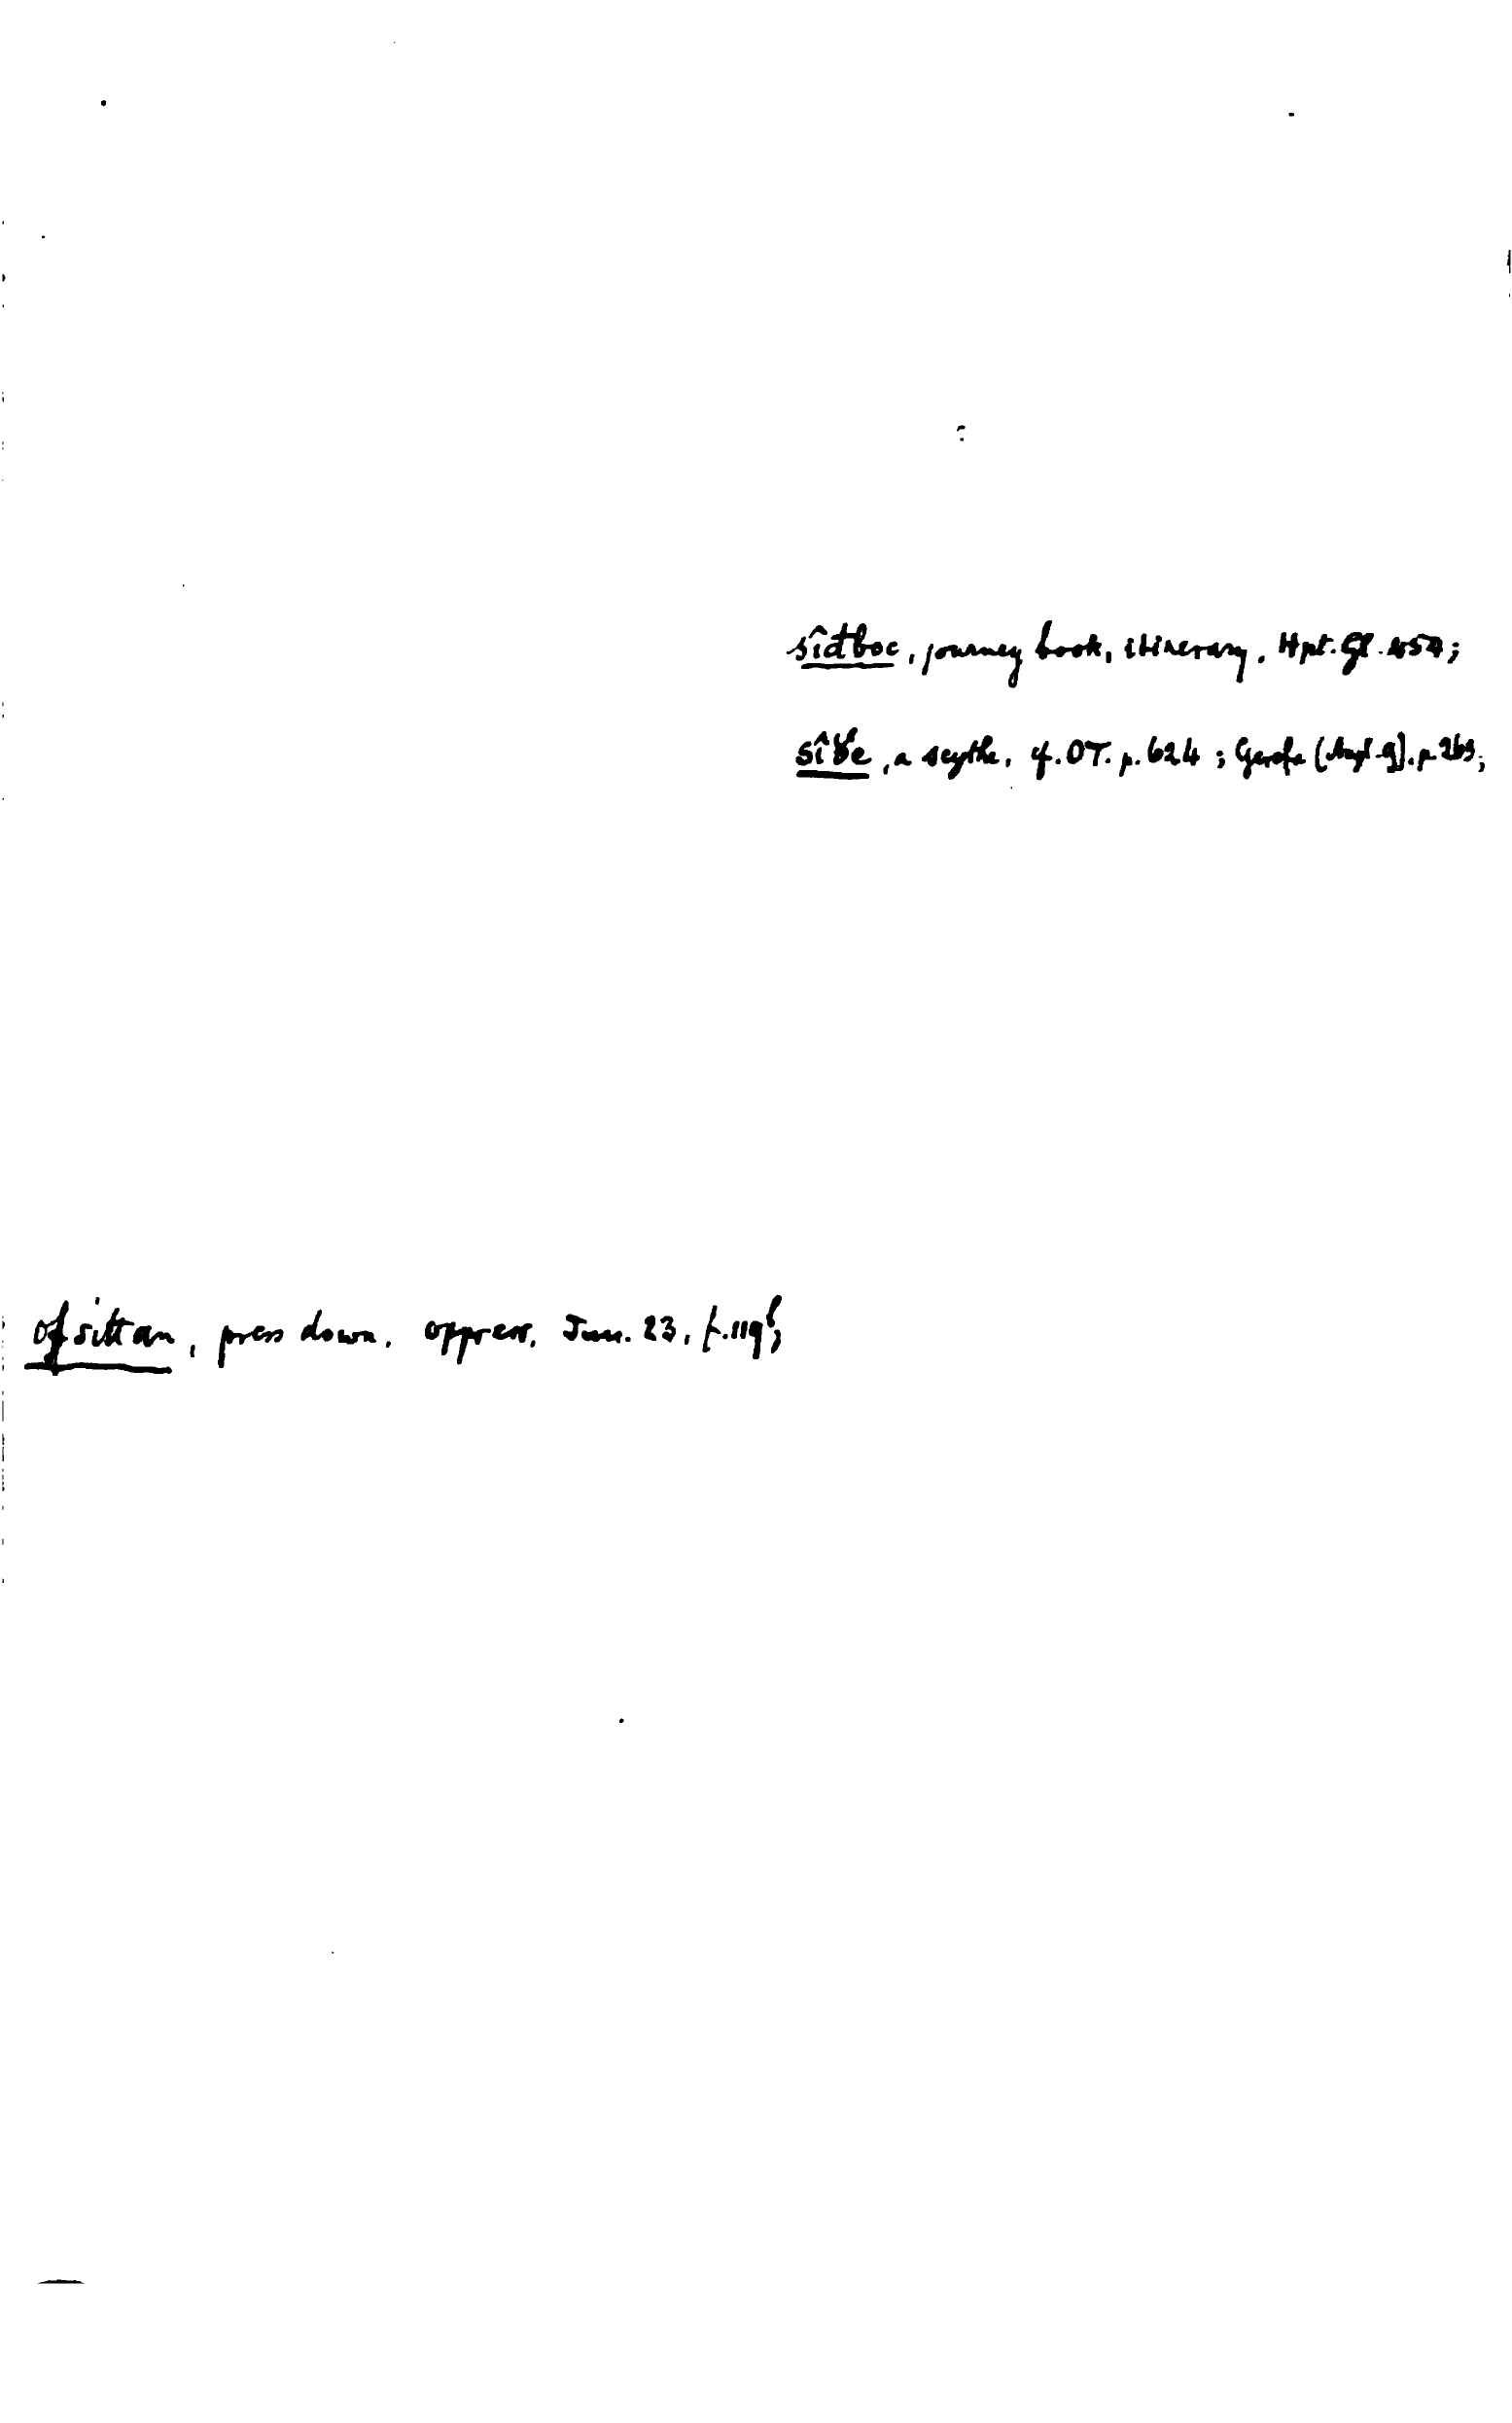 sîdboc, journey book, itinerary. Hpt. Gl. 454;
sîðe, a scythe, cf. OT. p. 624; Gerefa (Angl. 9). p. 263;
ofsittan, press down, oppress. Jun. 23, f. 119b;